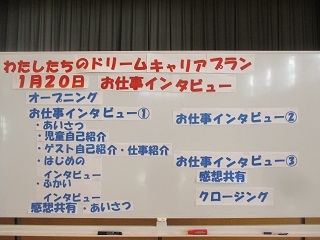 わたしたちのドリームキャリアプラン
1月20日　お仕事インタビュー
オープニング
お仕事インタビュー①
・あいさつ
・児童自己紹介
・ゲスト自己紹介・仕事紹介
・はじめの
インタビュー
・ふかい
インタビュー
感想共有・あいさつ
お仕事インタビュー②
お仕事インタビュー③
感想共有
クロージング